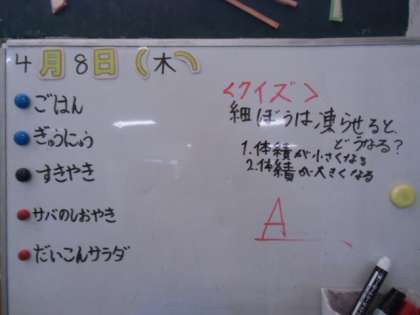 4月8日(木)
ごはん
ぎゅうにゅう
すきやき
サバのしおやき
だいこんサラダ
<クイズ>
細ぼうは凍らせると、
どうなる?
1.体積が小さくなる
2.体積が大きくなる
A